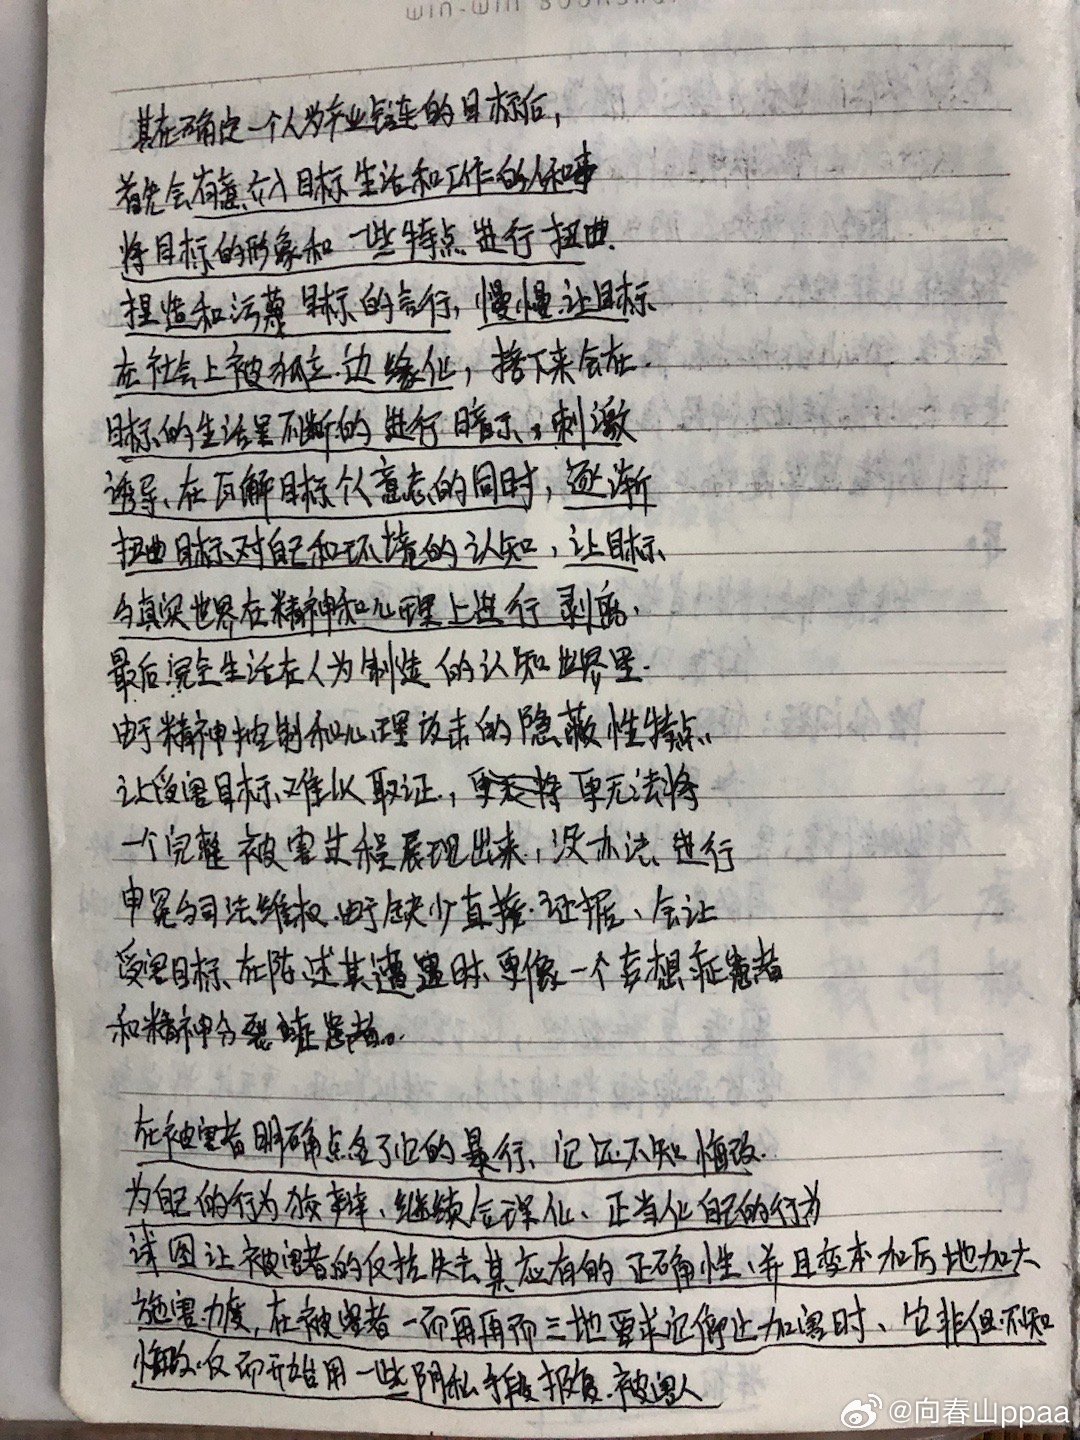 WIN-WIN BOOKSHOP
其在确定一个人为作业链的目标后，
首先会有意介入目标生活和工作的人和事
将目标的形象和一些特点进行扭曲.
捏造和污蔑目标的言行，慢慢让目标
在社会上被孤立.边缘化，接下来会在
目标的生活里不断的进行暗示、刺激
诱导、在瓦解目标个人意志的同时，逐渐
扭曲目标对自己和环境的认知，让目标
与真实世界在精神和心理上进行剥离.
最后完全生活在人为制造的认知世界里.
由于精神控制和心理攻击的隐蔽性特点.
让受害目标难以取证，更无法将
一个完整被害过程展现出来，没办法进行
申冤与司法维权.由于缺少直接证据、会让
受害目标在陈述其遭遇时更像一个妄想症患者
和精神分裂症患者。
在被害者明确点名了它的暴行、它还不知悔改.
为自己的行为狡辩、继续合理化、正当化自己的行为
试图让被害者的反抗失去其应有的正确性、并且变本加厉地加大
施害力度，在被害者一而再再而三地要求它停止加害时、它非但不知
悔改.反而开始用一些阴私手段报复.被害人
@向春山ppaa